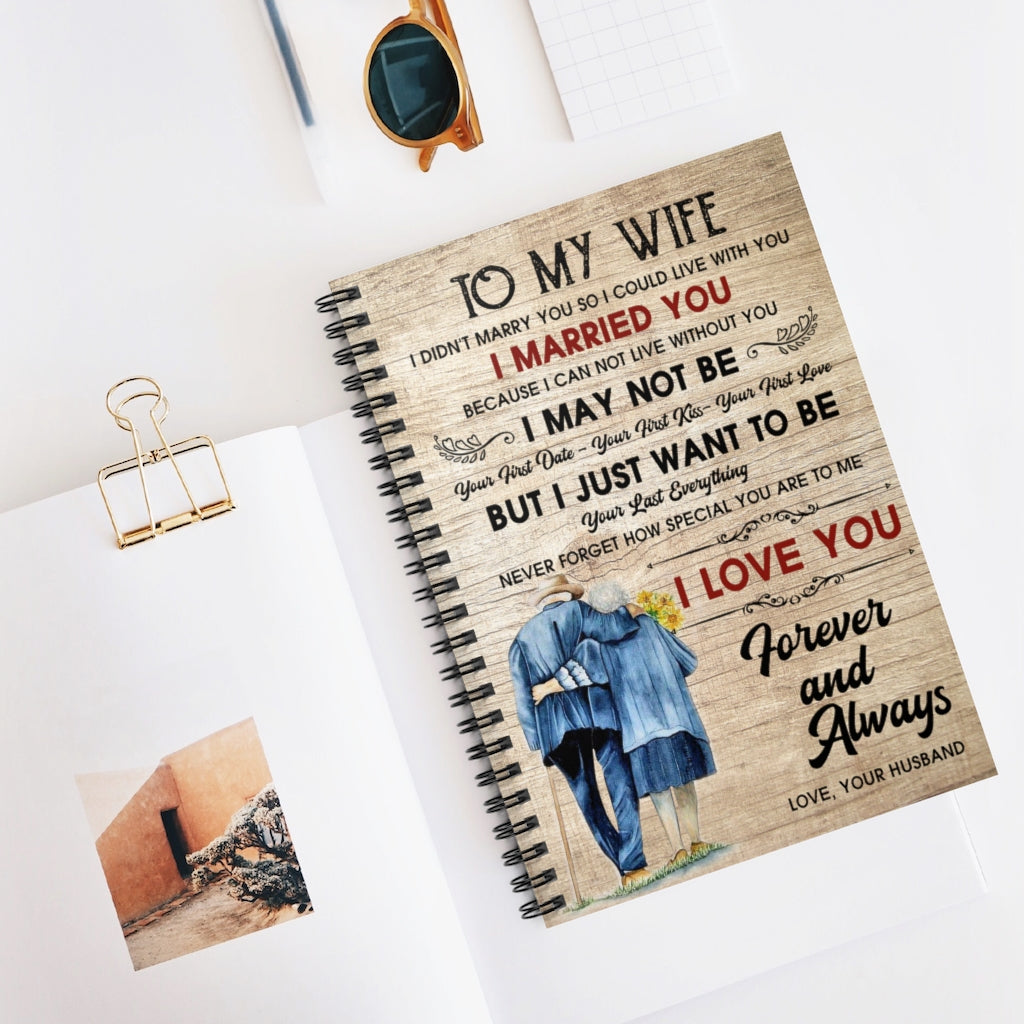 TO MY WIFE
I DIDN'T MARRY YOU SO I COULD LIVE WITH YOU
I MARRIED YOU
BECAUSE I CAN NOT LIVE WITHOUT YOU
I MAY NOT BE
Your First Date - Your First Kiss- Your First Love
BUT I JUST WANT TO BE
Your Last Everything
NEVER FORGET HOW SPECIAL YOU ARE TO ME
I LOVE YOU
Forever
and
Always
LOVE, YOUR HUSBAND